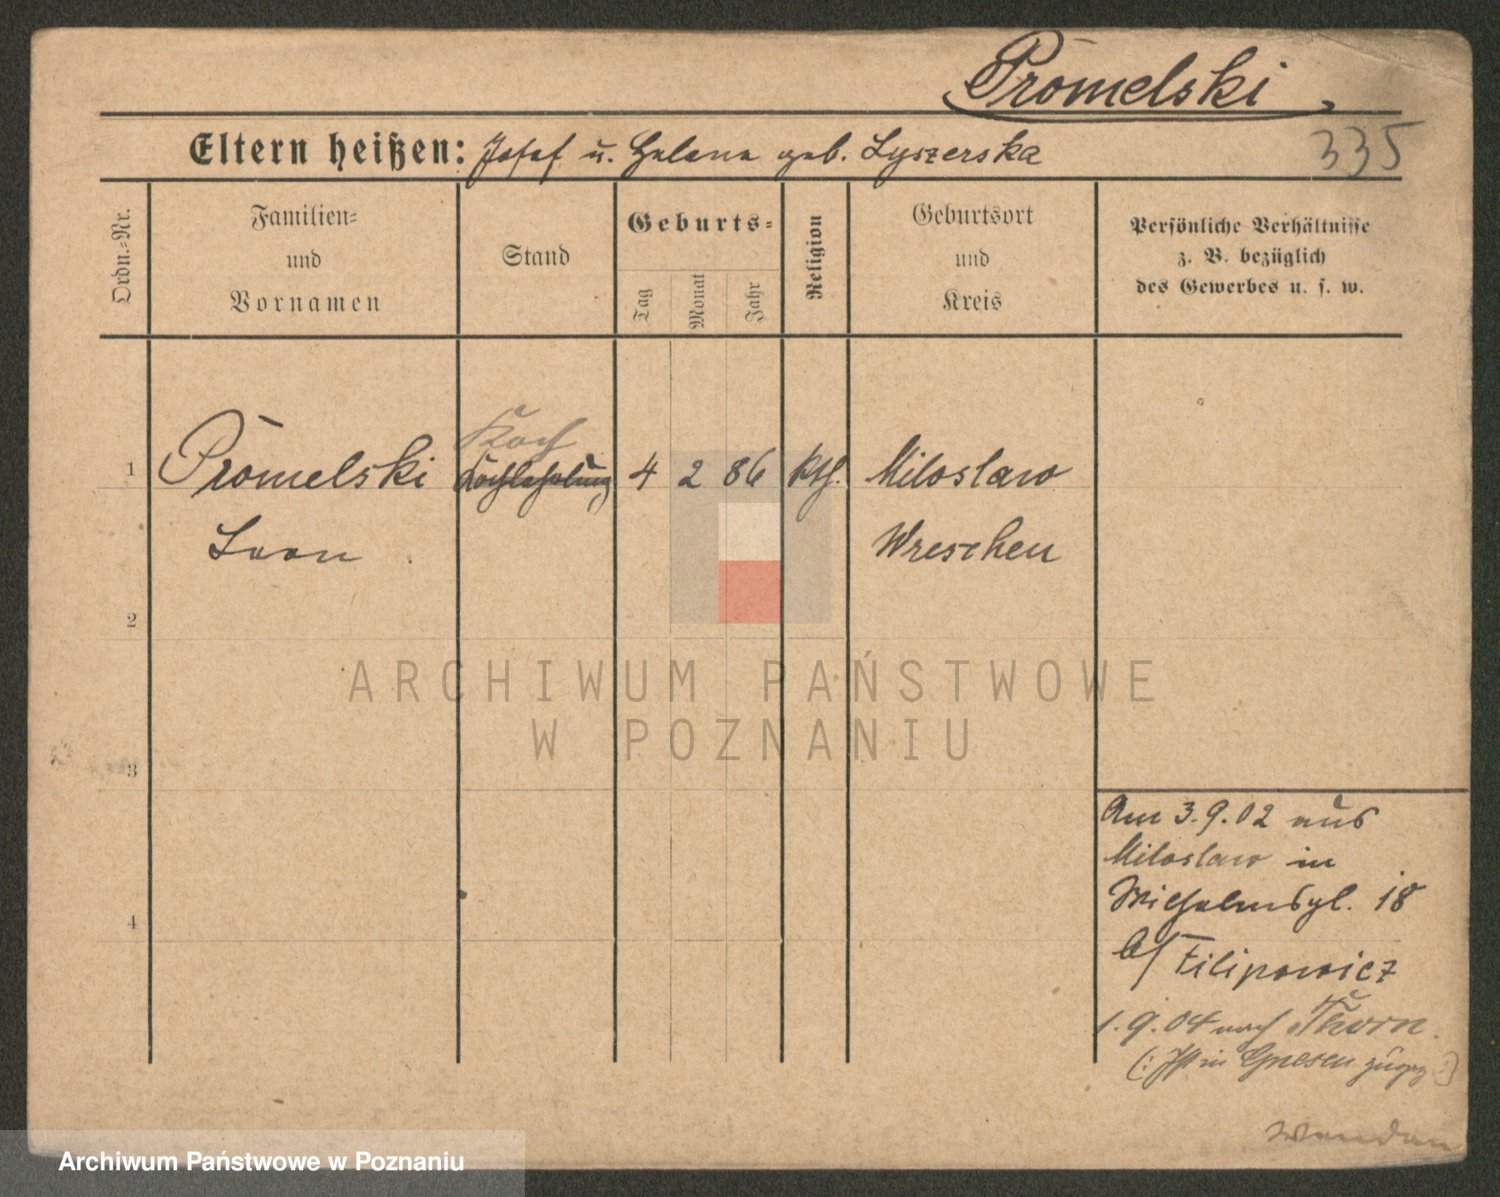 Promelski
335
Eltern heißen: Josef u. Helene geb. Lyszerska
Ordn.-Nr.
Familien-
und
Vornamen
Stand
Geburts-
Tag
Monat
Jahr
Religion
Geburtsort
und
Kreis
Persönliche Verhältnisse
z. B. bezüglich
des Gewerbes u. s. w.
Koch
1 Promelski Kochlehrling 4 2 86 kth. Miloslaw
Leon Wreschen
2
3
4
Am 3.9.02 aus
Miloslaw in
Wilhelmspl. 18
b/ Filipowicz
1.9.04 nach Thorn.
(: Ist in Gnesen :)
ARCHIWUM PAŃSTWOWE
W POZNANIU
Archiwum Państwowe w Poznaniu